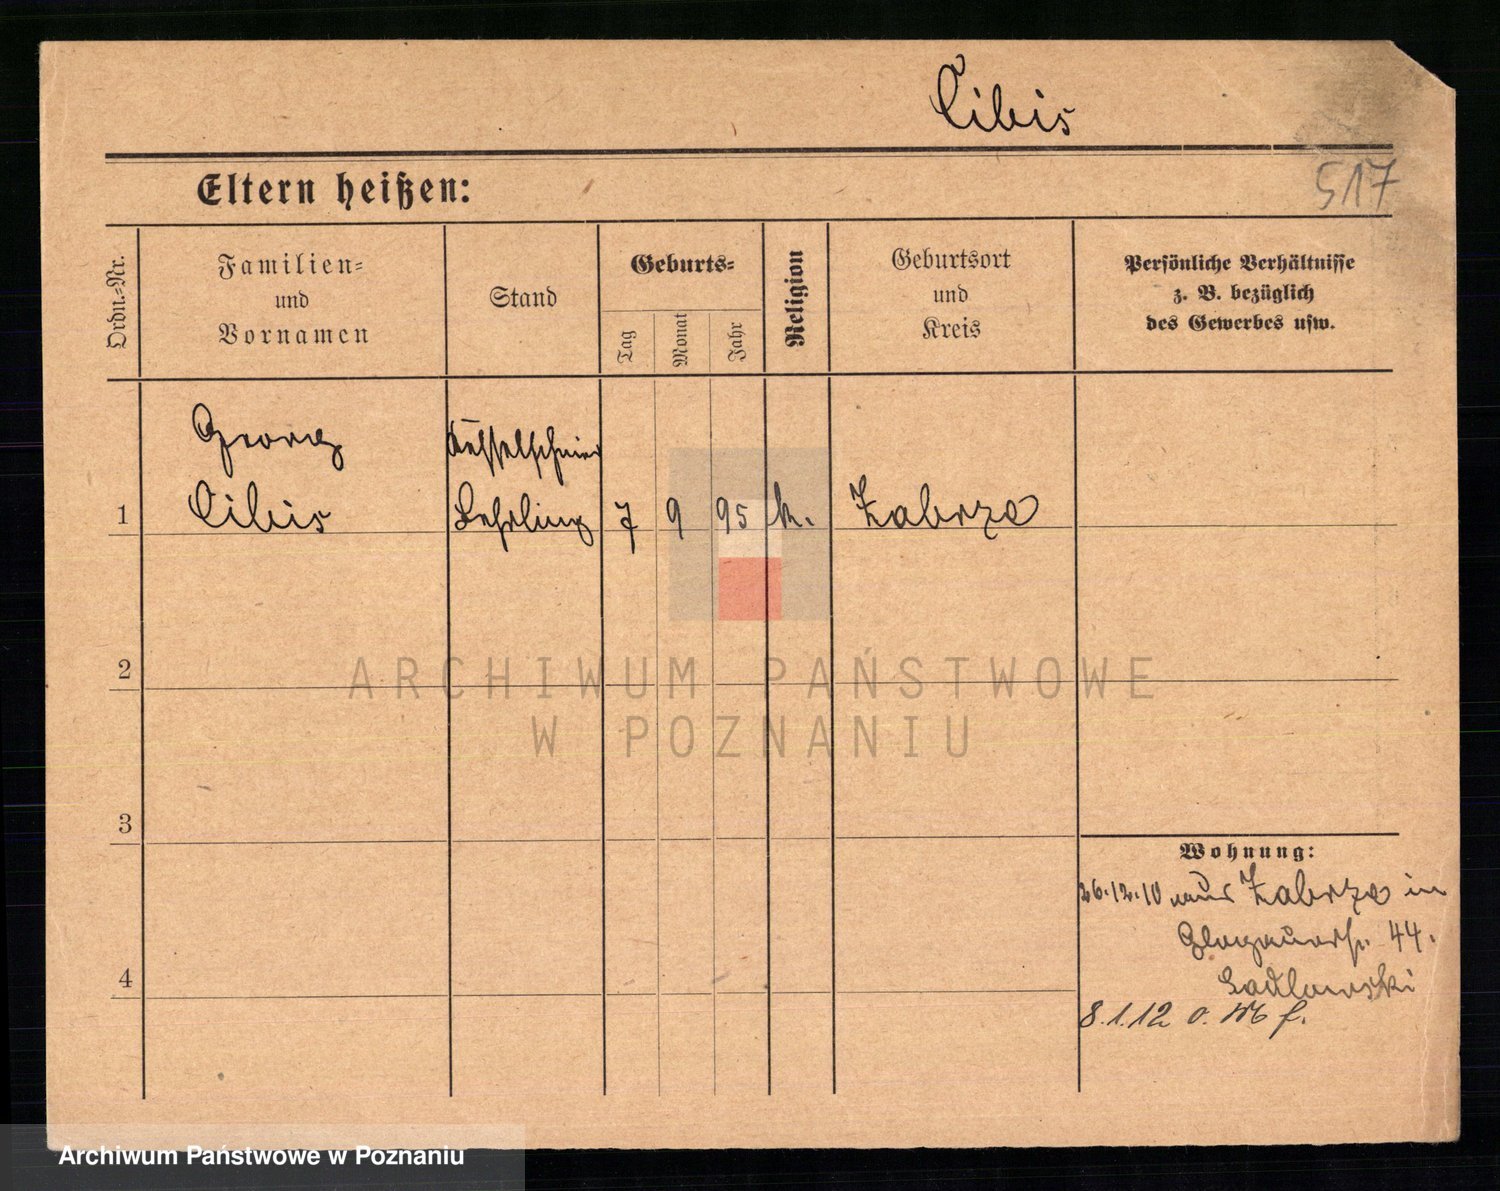 Cibis
517
Eltern heißen:
Ordn.-Nr.
Familien-
und
Vornamen
Stand
Geburts-
Tag
Monat
Jahr
Religion
Geburtsort
und
Kreis
Persönliche Verhältnisse
z. B. bezüglich
des Gewerbes usw.
Georg
1 Cibis Lehrling 7 9 95 k. Zabrze
ARCHIWUM PAŃSTWOWE
W POZNANIU
2
3
4
Wohnung:
26.12.10 aus Zabrze in
Glogauerstr. 44.
Sadlowski
8.1.12 o.
Archiwum Państwowe w Poznaniu